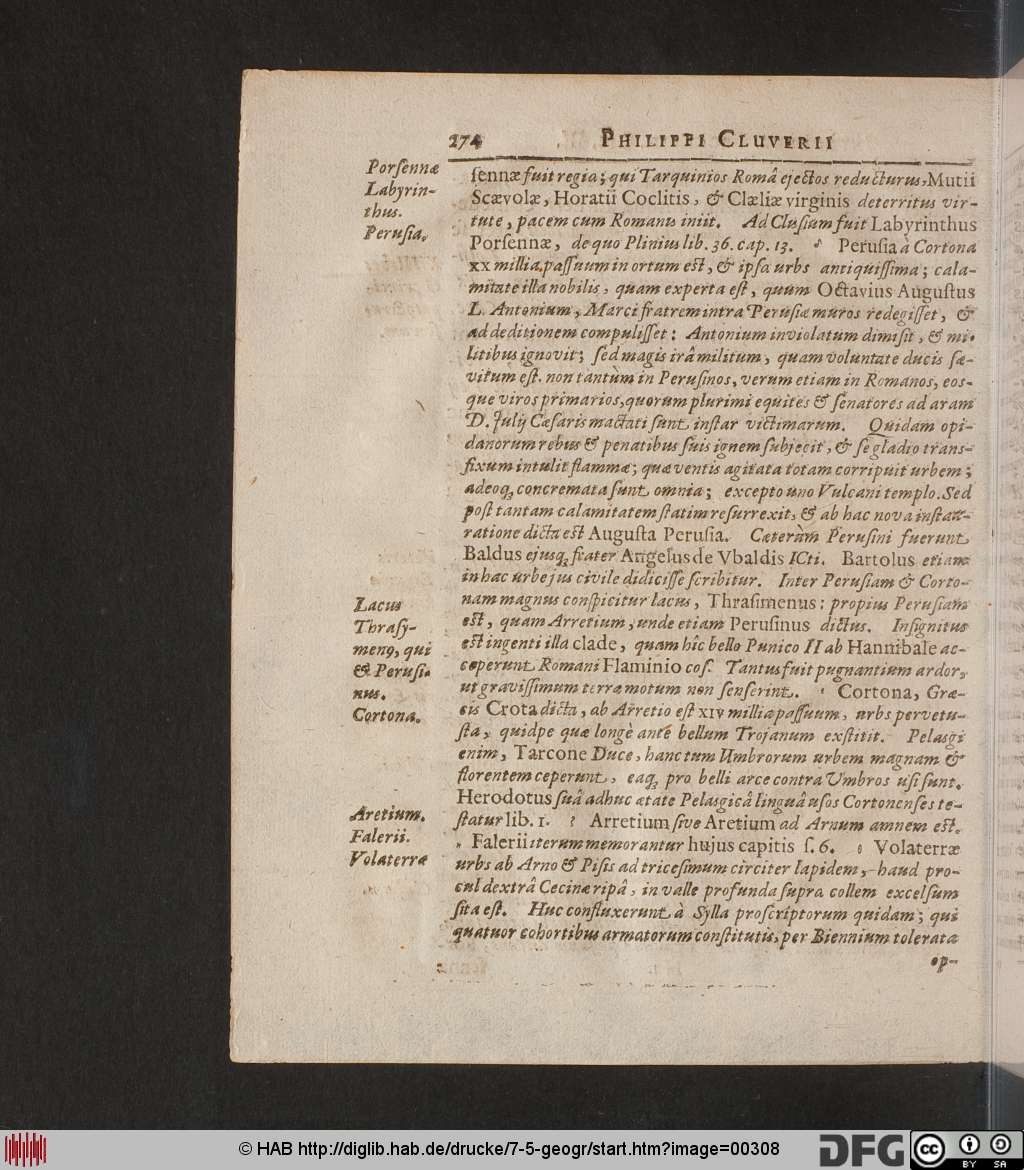 274 PHILIPPI CLUVERII
Porsennæ
Labyrin-
thus.
Perusia.
sennæ fuit regia; qui Tarquinios Româ ejectos reducturus, Mutii
Scævolæ, Horatii Coclitis, & Clæliæ virginis deterritus vir-
tute, pacem cum Romanis iniit. Ad Clusium fuit Labyrinthus
Porsennæ, de quo Plinius lib. 36. cap. 13. Perusia à Cortona
XX millia passuum in ortum est, & ipsa urbs antiquissima; cala-
mitate illa nobilis, quam experta est, quum Octavius Augustus
L. Antonium, Marci fratrem intra Perusiæ muros redegisset, &
ad deditionem compulisset: Antonium inviolatum dimisit, & mi-
litibus ignovit; sed magis irâ militum, quam voluntate ducis sæ-
vitum est. non tantùm in Perusinos, verum etiam in Romanos, eos-
que viros primarios, quorum plurimi equites & senatores ad aram
D. Julij Cæsaris mactati sunt instar victimarum. Quidam opi-
danorum rebus & penatibus suis ignem subjecit, & se gladio trans-
fixum intulit flammæ; quæ ventis agitata totam corripuit urbem;
adeoq; concremata sunt omnia; excepto uno Vulcani templo. Sed
post tantam calamitatem statim resurrexit, & ab hac nova instau-
ratione dicta est Augusta Perusia. Cæterùm Perusini fuerunt
Baldus ejusq; frater Angelus de Vbaldis ICti. Bartolus etiam
in hac urbe jus civile didicisse scribitur. Inter Perusiam & Corto-
nam magnus conspicitur lacus, Thrasimenus: propius Perusiam
est, quam Arretium, unde etiam Perusinus dictus. Insignitus
est ingenti illa clade, quam hîc bello Punico II ab Hannibale ac-
ceperunt Romani Flaminio cos. Tantus fuit pugnantium ardor,
ut gravissimum terræ motum non senserint. Cortona, Græ-
cis Crota dicta, ab Arretio est XIV millia passuum, urbs pervetu-
sta, quidpe quæ longè ante bellum Trojanum exstitit. Pelasgi
enim, Tarcone Duce, hanc tum Umbrorum urbem magnam &
florentem ceperunt, eaq; pro belli arce contra Umbros usi sunt.
Herodotus suâ adhuc ætate Pelasgicâ linguâ usos Cortonenses te-
statur lib. 1. Arretium sive Aretium ad Arnum amnem est.
Falerii iterum memorantur hujus capitis s. 6. Volaterræ
urbs ab Arno & Pisis ad tricesimum circiter lapidem, haud pro-
cul dextrâ Cecinæ ripâ, in valle profunda supra collem excelsum
sita est. Huc confluxerunt à Sylla proscriptorum quidam; qui
quatuor cohortibus armatorum constitutis, per Biennium tolerata
op-
Lacus
Thrasy-
men9, qui
& Perusi-
nus.
Cortona.
Aretium.
Falerii.
Volaterræ
© HAB http://diglib.hab.de/drucke/7-5-geogr/start.htm?image=00308
DFG
cc
BY SA